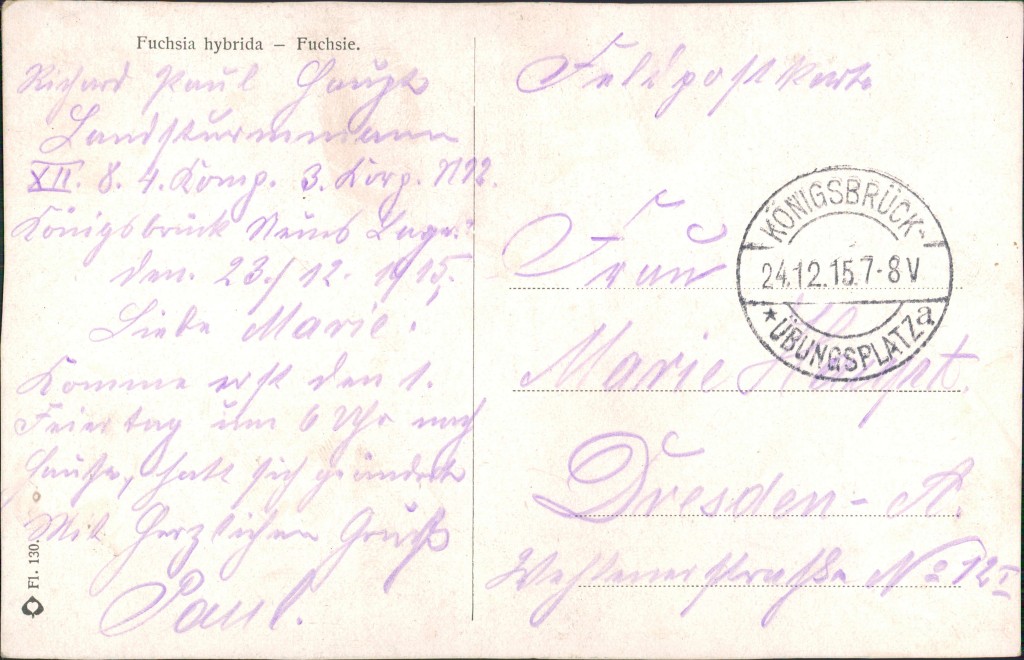 Fuchsia hybrida – Fuchsie.
Richard Paul Haupt
Landsturmmann
XII. 8. 4. Komp. 3. Korp.
Königsbrück Neues Lager.
den. 23./12. 1915.
Liebe Marie.
Komme erst den 1.
Feiertag um 6 Uhr nach
Hause, hatt sich geändert
Mit Herzlichen Gruß
Paul.
Fl. 130.
Feldpostkarte
Frau
Marie Haupt.
Dresden-A.
straße No 12 I
KÖNIGSBRÜCK-
24.12.15.7-8V
* ÜBUNGSPLATZ a